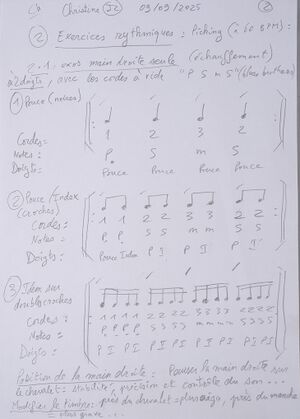 Christine J2 09/09/2025 ②
② Exercices rythmiques : Picking (à 60 BPM) :
2.1. exos main droite seule (échauffement)
à 2 doigts, avec les codes à vide "P S m S"
① Pouce (noires)
Cordes: 1 2 3 2
Notes : P S m S
Doigts: Pouce Pouce Pouce Pouce
② Pouce/Index
(croches)
Cordes: 1 1 2 2 3 3 2 2
Notes : P P S S m m S S
Doigts: Pouce Index P I P I P I
③ Idem sur
doubles croches
Cordes : 1 1 1 1 2 2 2 2 3 3 3 3 2 2 2 2
Notes : P P P P S S S S m m m m S S S S
Doigts : P I P I P I P I P I P I
Position de la main droite : Pauser la main droite sur
le chevalet : stabilité, précision et contrôle du son...
Modifier le timbre: près du chevalet = plus aigu, près du manche
= plus grave...